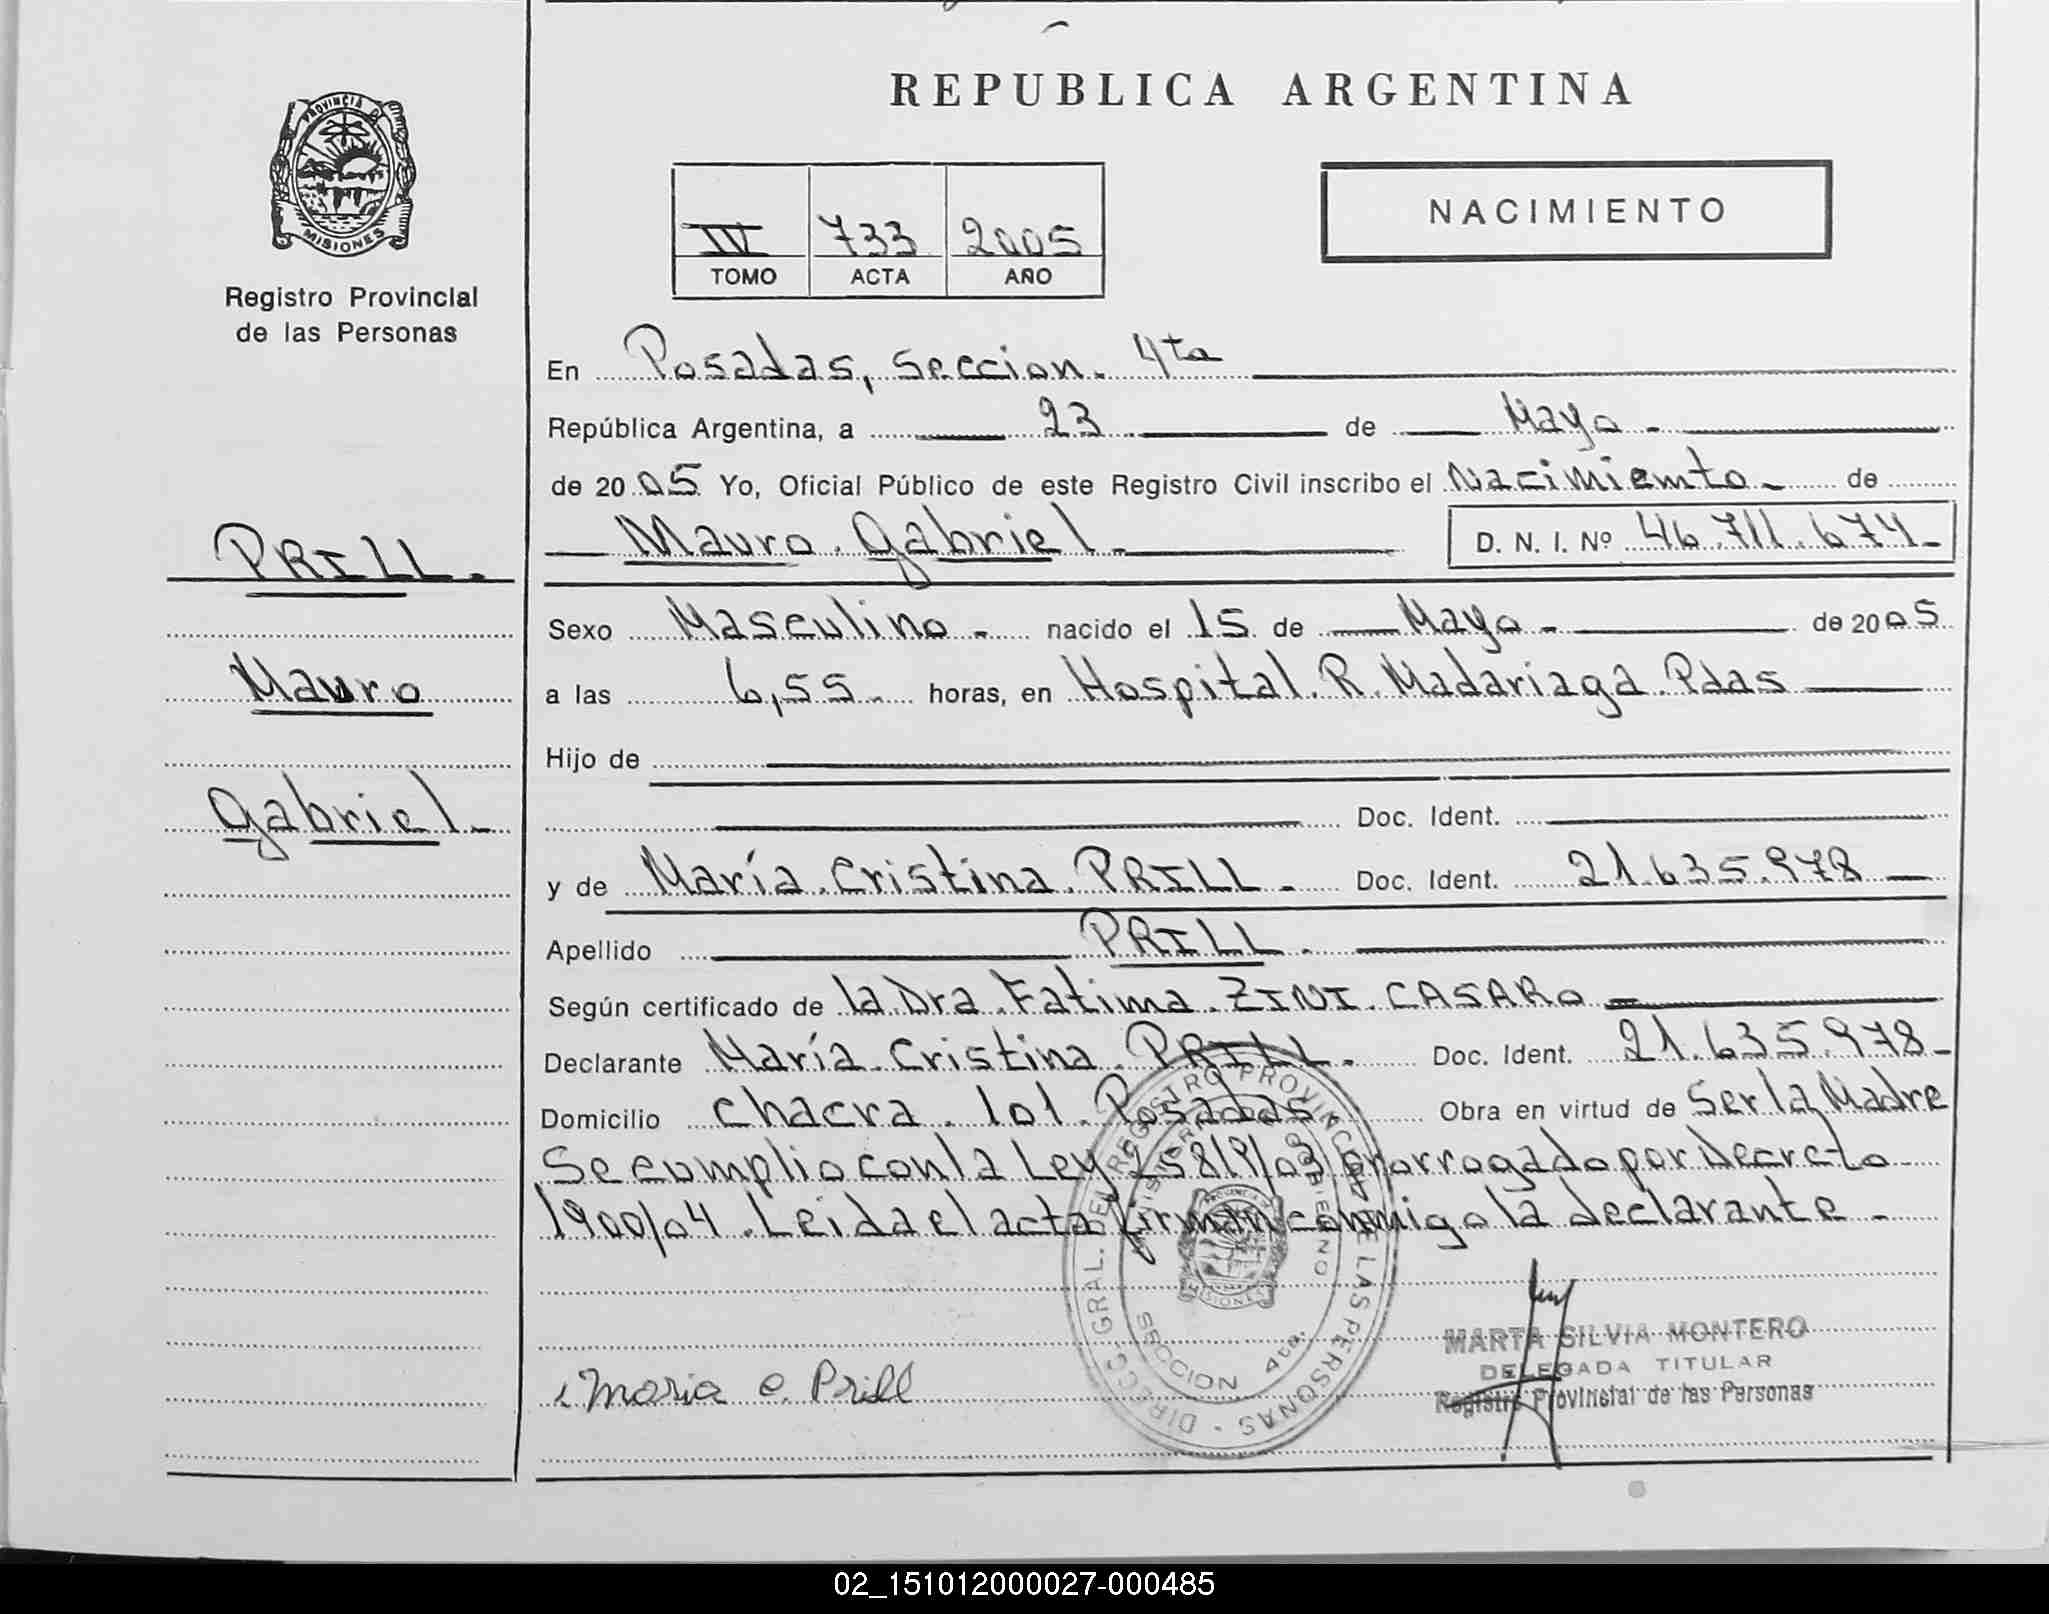 REPUBLICA ARGENTINA
PROVINCIA D
MISIONES
Registro Provincial
de las Personas
IV 733 2005
TOMO ACTA AÑO
NACIMIENTO
PRILL.
Mauro
Gabriel.
En Posadas, seccion. 4ta
República Argentina, a 23 de Mayo.
de 2005 Yo, Oficial Público de este Registro Civil inscribo el Nacimiento. de
Mauro Gabriel. D. N. I. Nº 46.711.674.
Sexo Masculino. nacido el 15 de Mayo. de 2005
a las 6,55. horas, en Hospital. R. Madariaga. Pdas
Hijo de
Doc. Ident.
y de María Cristina PRILL. Doc. Ident. 21.635.978
Apellido PRILL.
Según certificado de la Dra. Fatima. ZINI. CASARO
Declarante María Cristina. PRILL. Doc. Ident. 21.635.978
Domicilio chacra. 101. Posadas Obra en virtud de ser la Madre
Se cumplio con la Ley 25819/03 prorrogado por Decreto
1900/04. Leida el acta firman conmigo la declarante.
DIRECC. GRAL. DEL REGISTRO PROVINCIAL DE LAS PERSONAS
MINISTERIO DE GOBIERNO
SECCION 4ta.
MISIONES
Maria C. Prill
MARTA SILVIA MONTERO
DELEGADA TITULAR
Registro Provincial de las Personas
02_151012000027-000485